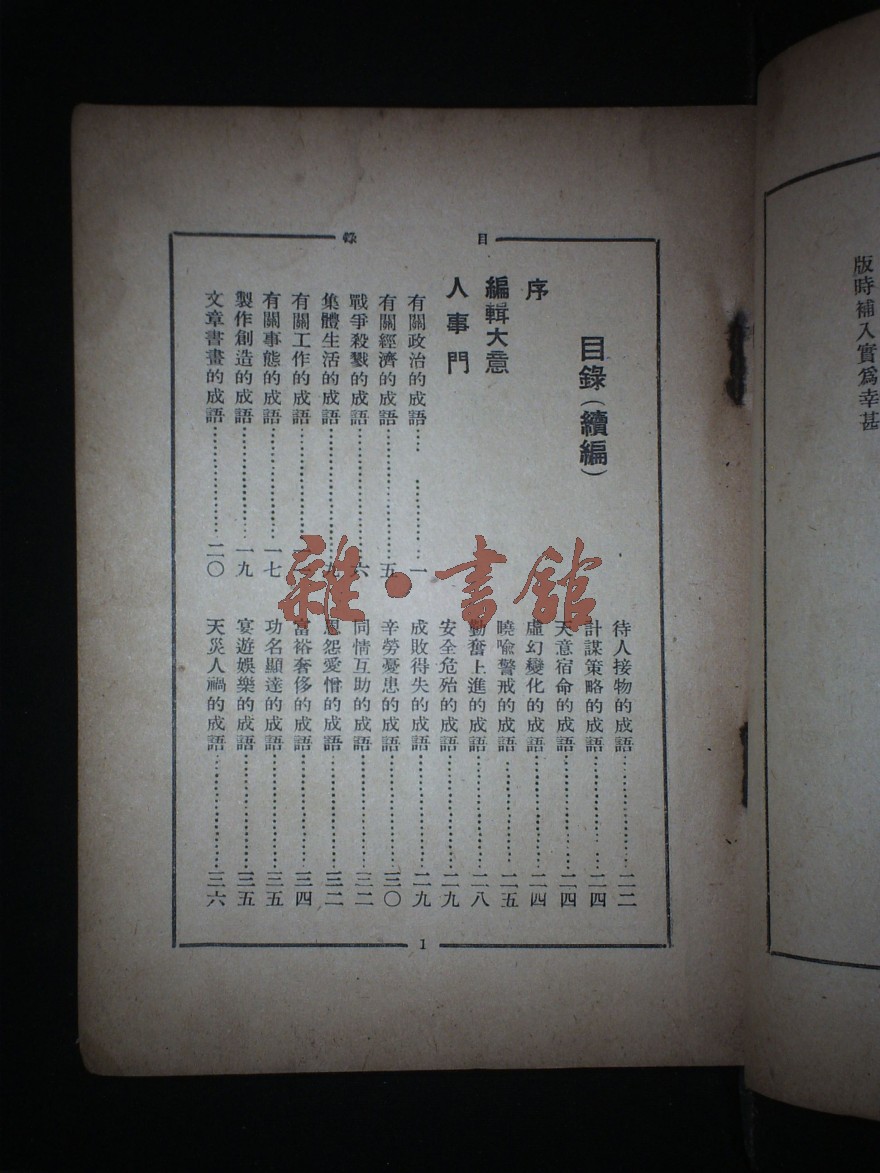 版時補入實爲幸甚
目錄
目錄(續編)
序
編輯大意
人事門
有關政治的成語…………一
有關經濟的成語…………五
戰爭殺戮的成語…………六
集體生活的成語…………九
有關工作的成語…………
有關事態的成語…………一七
製作創造的成語…………一九
文章書畫的成語…………二〇
待人接物的成語…………二二
計謀策略的成語…………二四
天意宿命的成語…………二四
虛幻變化的成語…………二四
曉喩警戒的成語…………二五
勤奮上進的成語…………二八
安全危殆的成語…………二九
成敗得失的成語…………二九
辛勞憂患的成語…………三〇
同情互助的成語…………三二
恩怨愛憎的成語…………三二
富裕奢侈的成語…………三四
功名顯達的成語…………三五
宴遊娛樂的成語…………三五
天災人禍的成語…………三六
1
雜·書館